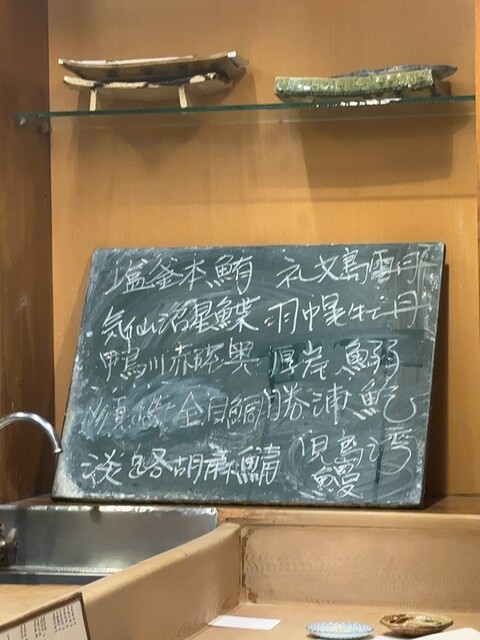 塩釜本鮪 礼文島雲丹
気仙沼星鰈 羽幌牡丹
鴨川赤 奥 厚岸 鰯
須 金目鯛 勝浦
淡路胡麻鯖 児島湾
鰻